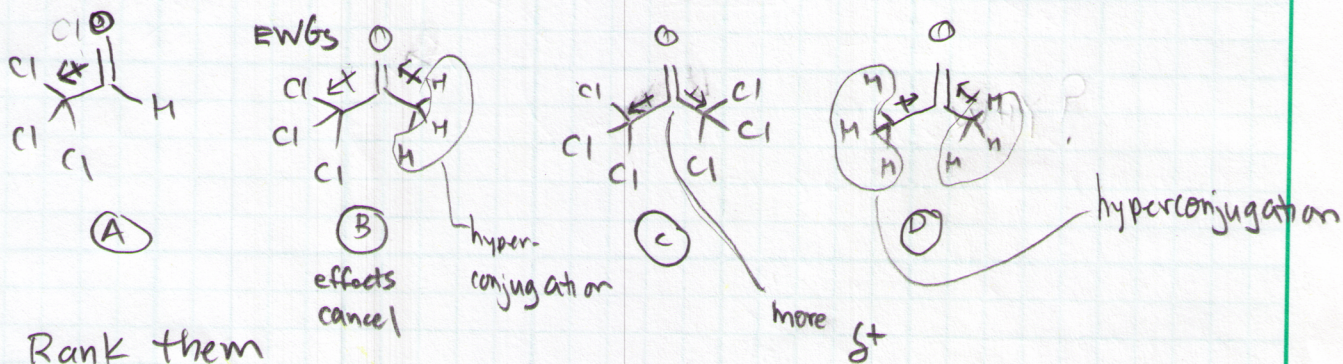 EWGs
Cl O
Cl
Cl
Cl
H
A
O
Cl
Cl
Cl
H
H
H
B
effects
cancel
hyper-
conjugation
O
Cl
Cl
Cl
Cl
Cl
Cl
C
more δ+
O
H
H
H
H
H
H
?
D
hyperconjugation
Rank them